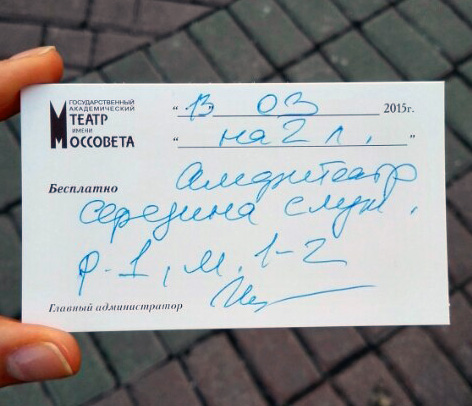 ГОСУДАРСТВЕННЫЙ
АКАДЕМИЧЕСКИЙ
ТЕАТР
ИМЕНИ
МОССОВЕТА
"13" 03 2015г.
"на 2 л."
Бесплатно
Амфитеатр
середина служ.
р. 1, м. 1-2
Главный администратор